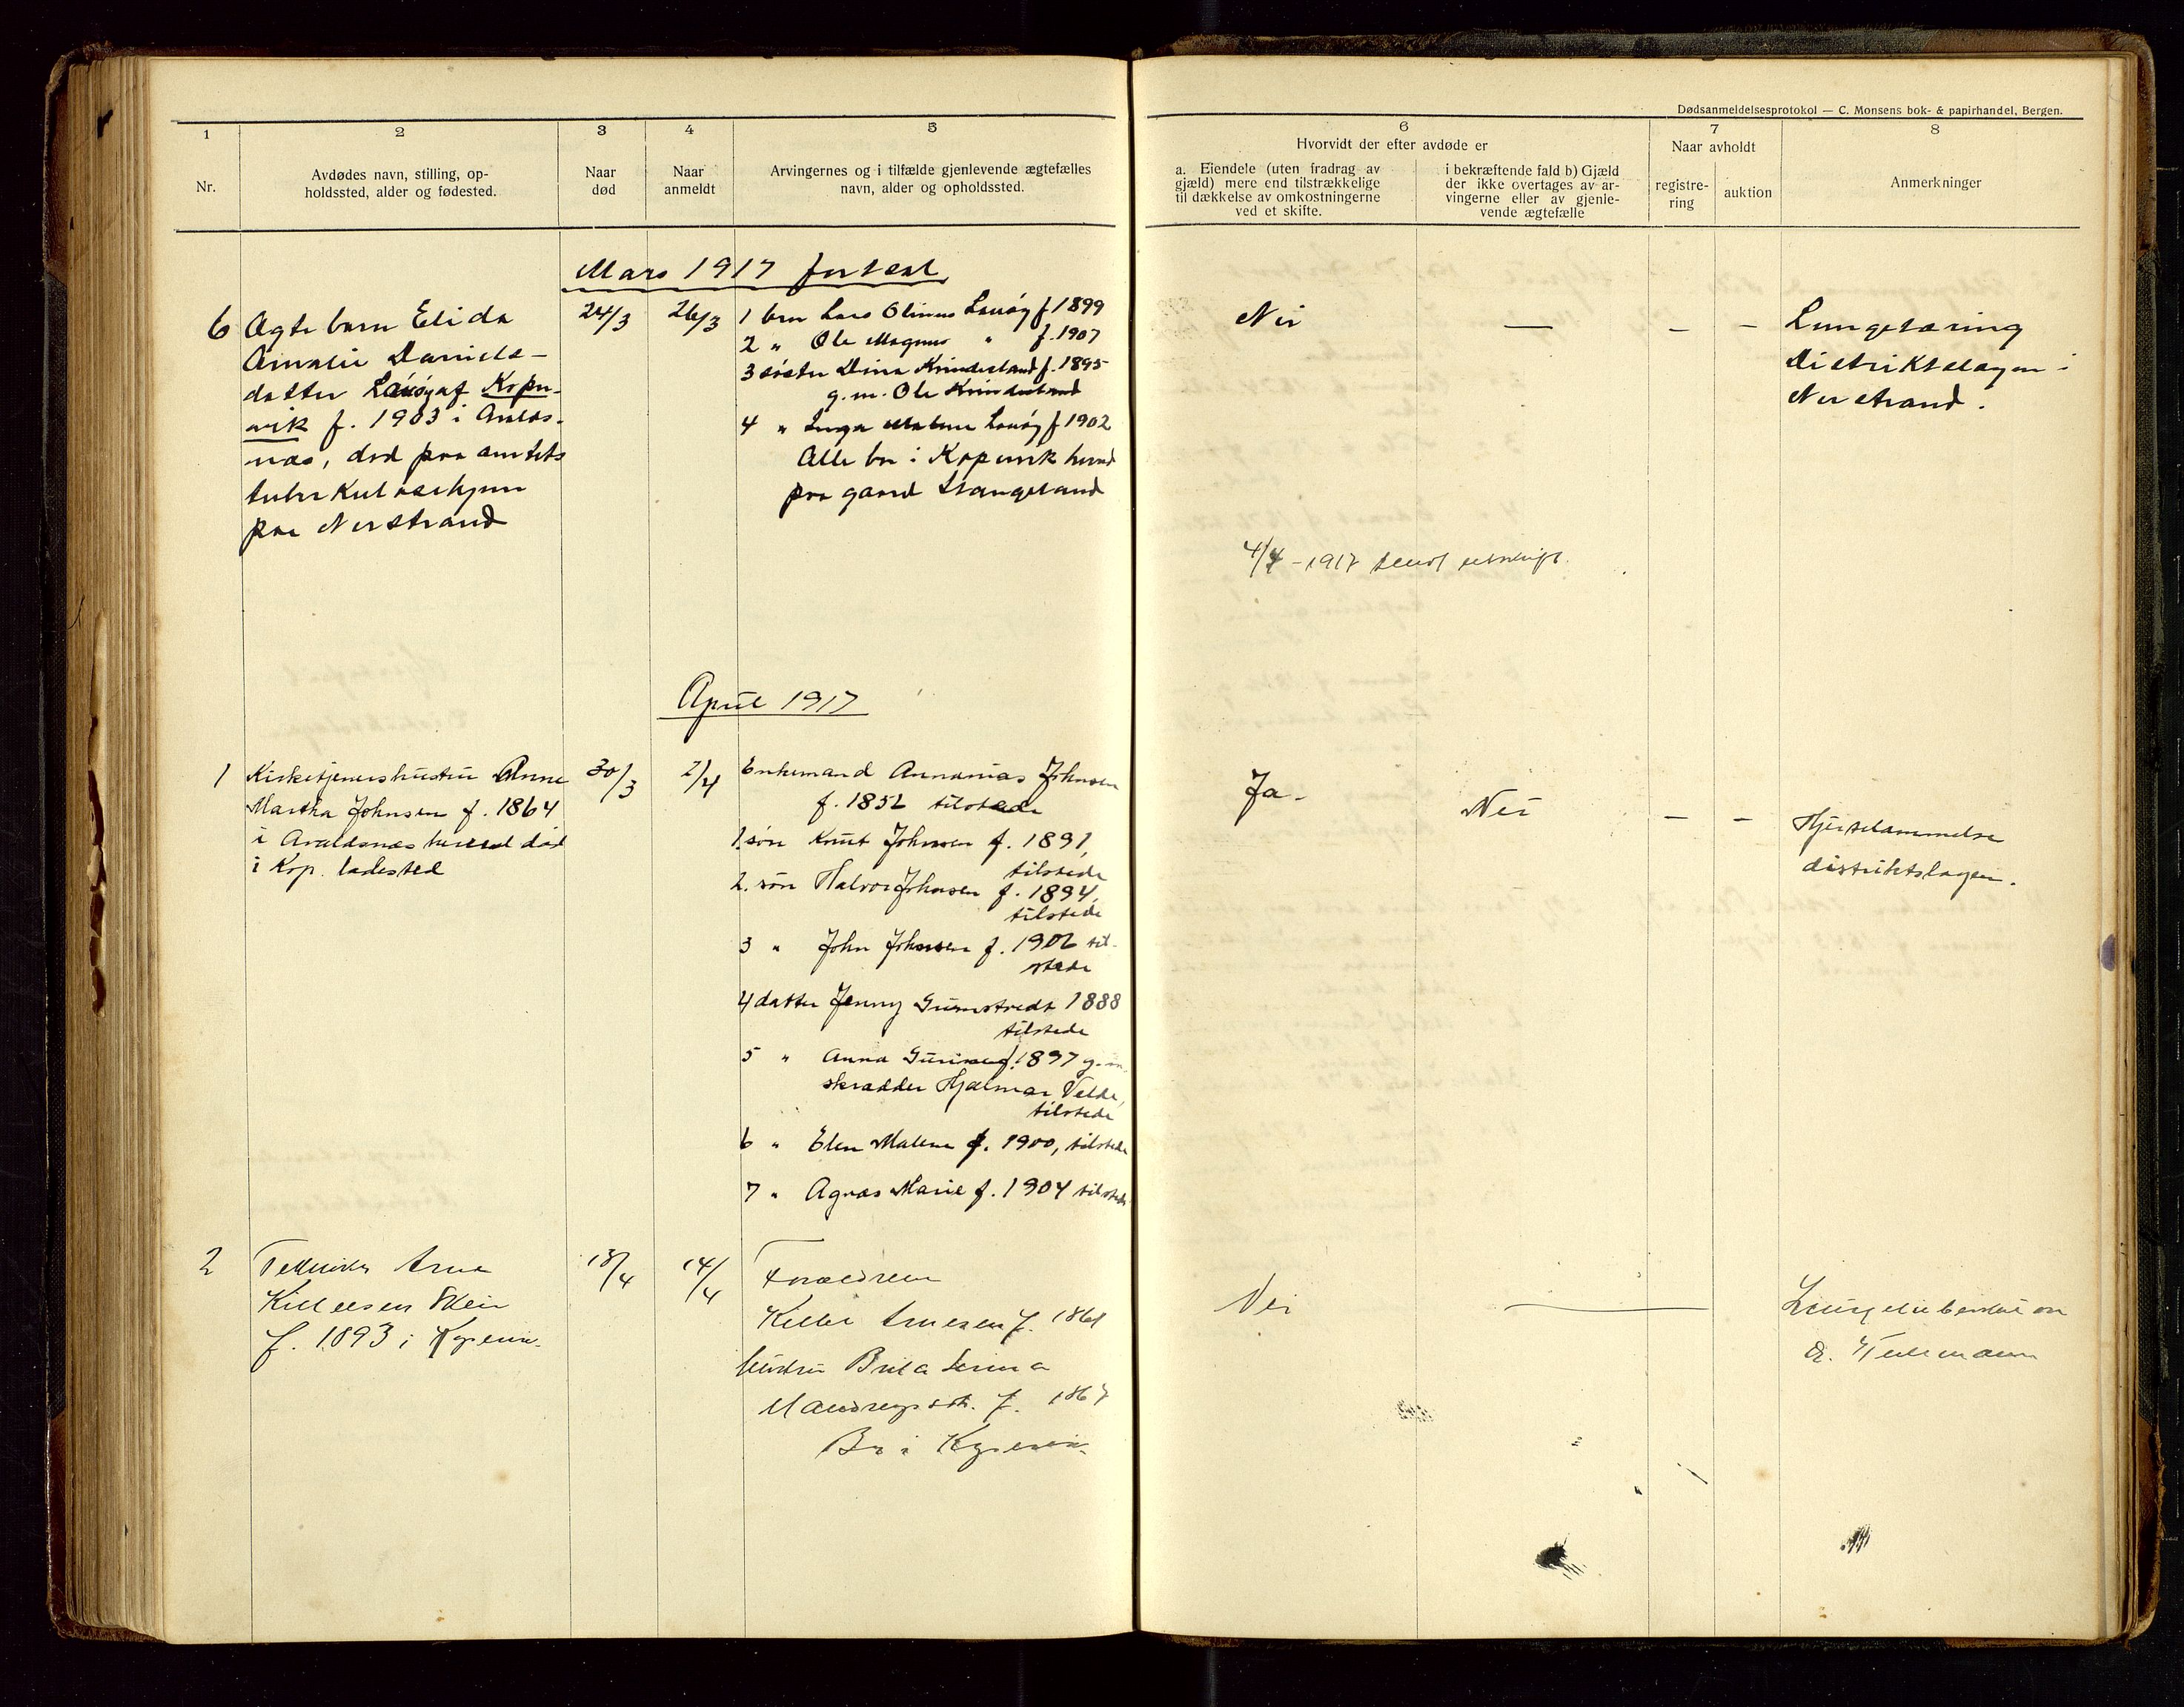 Dødsanmeldelsesprotokol — C. Monsens bok- & papirhandel, Bergen.
1
2
3
4
5
6
7
8
Nr.
Avdødes navn, stilling, op-
holdssted, alder og fødested.
Naar
død
Naar
anmeldt
Arvingernes og i tilfælde gjenlevende ægtefælles
navn, alder og opholdssted.
Hvorvidt der efter avdøde er
a. Eiendele (uten fradrag av
gjæld) mere end tilstrækkelige
til dækkelse av omkostningerne
ved et skifte.
i bekræftende fald b) Gjæld
der ikke overtages av ar-
vingerne eller av gjenle-
vende ægtefælle
Naar avholdt
registre-
ring
auktion
Anmerkninger
Mars 1917 fortsat
6
Ægte barn Elida
Amalie Daniels-
datter af Koper-
vik f. 1903 i Avalds-
næs, død paa amtets
tuberkulosehjem
paa Nerstrand
24/3
26/3
1 bror Lars Olinus f 1899
2 " Ole Magnus " f. 1907
3 søster Dina f. 1895
g.m. Ole
4 " Inga Malene f 1902
Alle bor i Kopervik herred
paa gaard Stangeland
Nei
—
–
–
Lungetæring
Distriktslægen i
Nerstrand.
4/4 - 1917 sendt utskrift.
April 1917
1
Kirketjenershustru Anne
Martha Johnsen f. 1864
i Avaldsnæs herred død
i Kop. ladested
30/3
2/4
Enkemand Annanias Johnsen
f. 1852 tilstede
1. søn Knut Johnsen f. 1891,
tilstede
2. søn Halvor Johnsen f. 1894,
tilstede
3 " John Johnsen f. 1902 til-
stede
4 datter Jenny 1888
tilstede
5 " Anna f. 1897 g.m.
skrædder Hjalmar Velde,
tilstede
6 " Elen Malene f. 1900, tilstede
7 " Agnæs Marie f. 1904 tilstede
Ja.
Nei
–
–
Hjertelammelse
distriktslægen.
2
Arne
f. 1893 i Kopervik
13/4
14/4
Forældrene
f. 1861
hustru Brita Serina
f. 1867
Bor i Kopervik
Nei
—
Lungetuberkulose